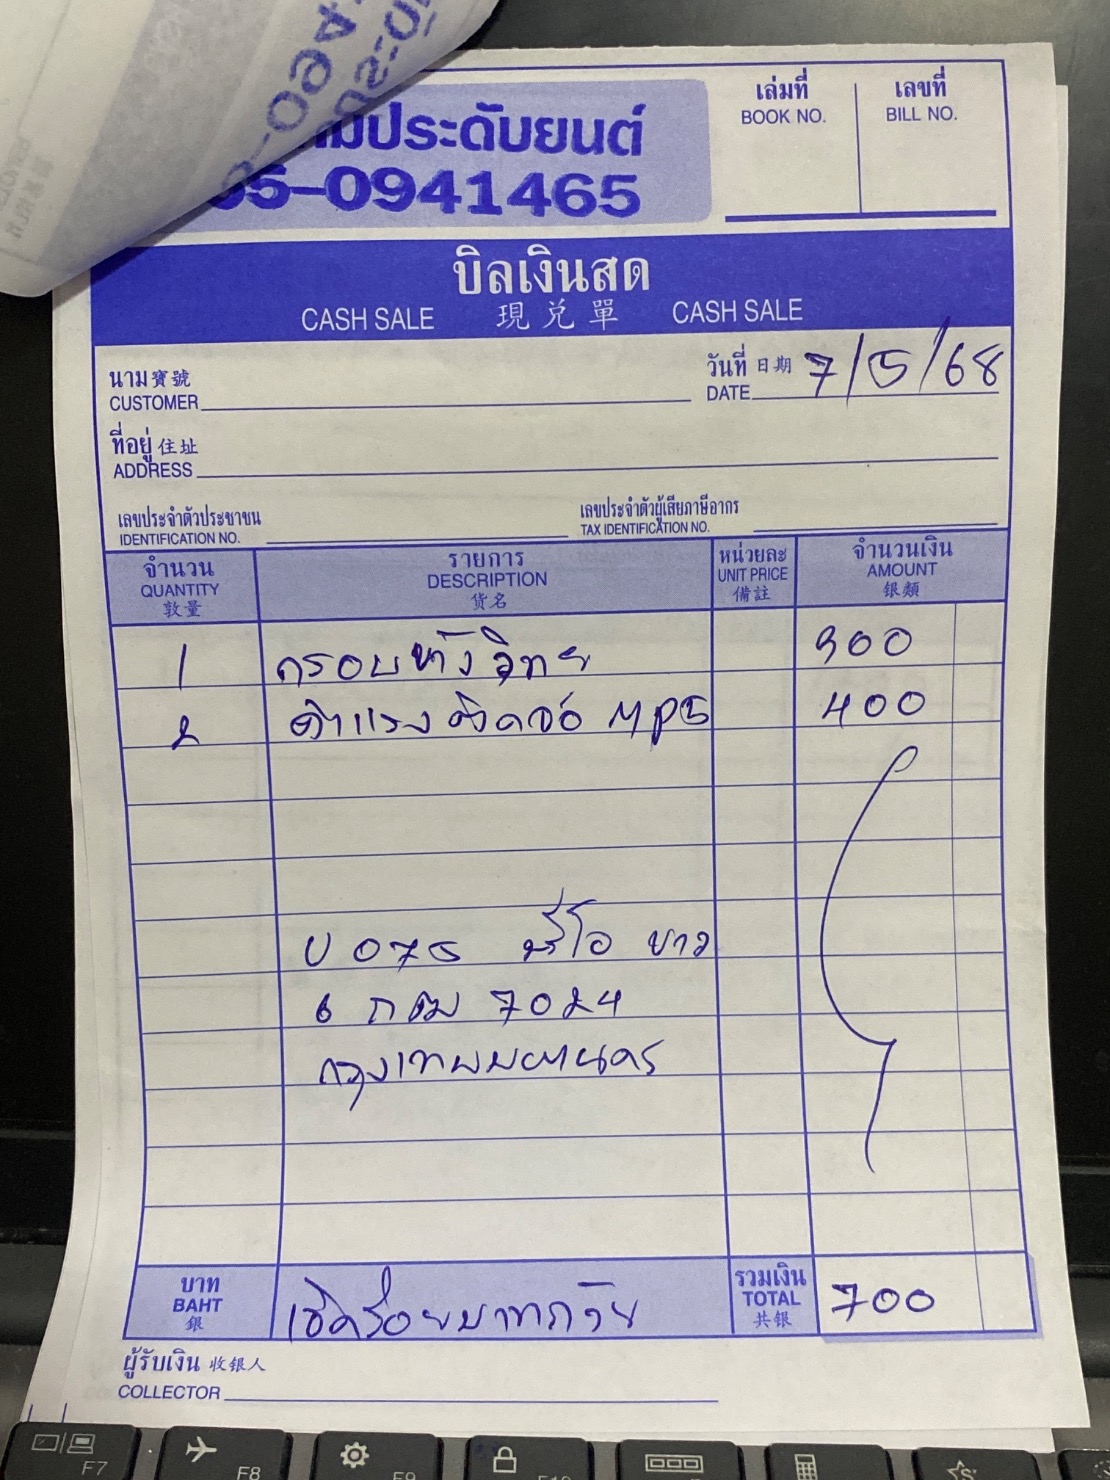 ประดับยนต์
5-0941465
เล่มที่ เลขที่
BOOK NO. BILL NO.
บิลเงินสด
CASH SALE 現兑單 CASH SALE
นาม寶號 วันที่ 日期 7/5/68
CUSTOMER DATE
ที่อยู่ 住址
ADDRESS
เลขประจำตัวประชาชน เลขประจำตัวผู้เสียภาษีอากร
IDENTIFICATION NO. TAX IDENTIFICATION NO.
จำนวน รายการ หน่วยละ จำนวนเงิน
QUANTITY DESCRIPTION UNIT PRICE AMOUNT
敦量 货名 備註 银類
1 กรอบหน้าวิทยุ 300
2 MP5 400
ป 075 รีโว่ ขาว
6 7024
กรุงเทพมหานคร
บาท รวมเงิน
BAHT เจ็ดร้อยบาทถ้วน TOTAL 700
銀 共银
ผู้รับเงิน 收银人
COLLECTOR
F7 F8 F9 F10